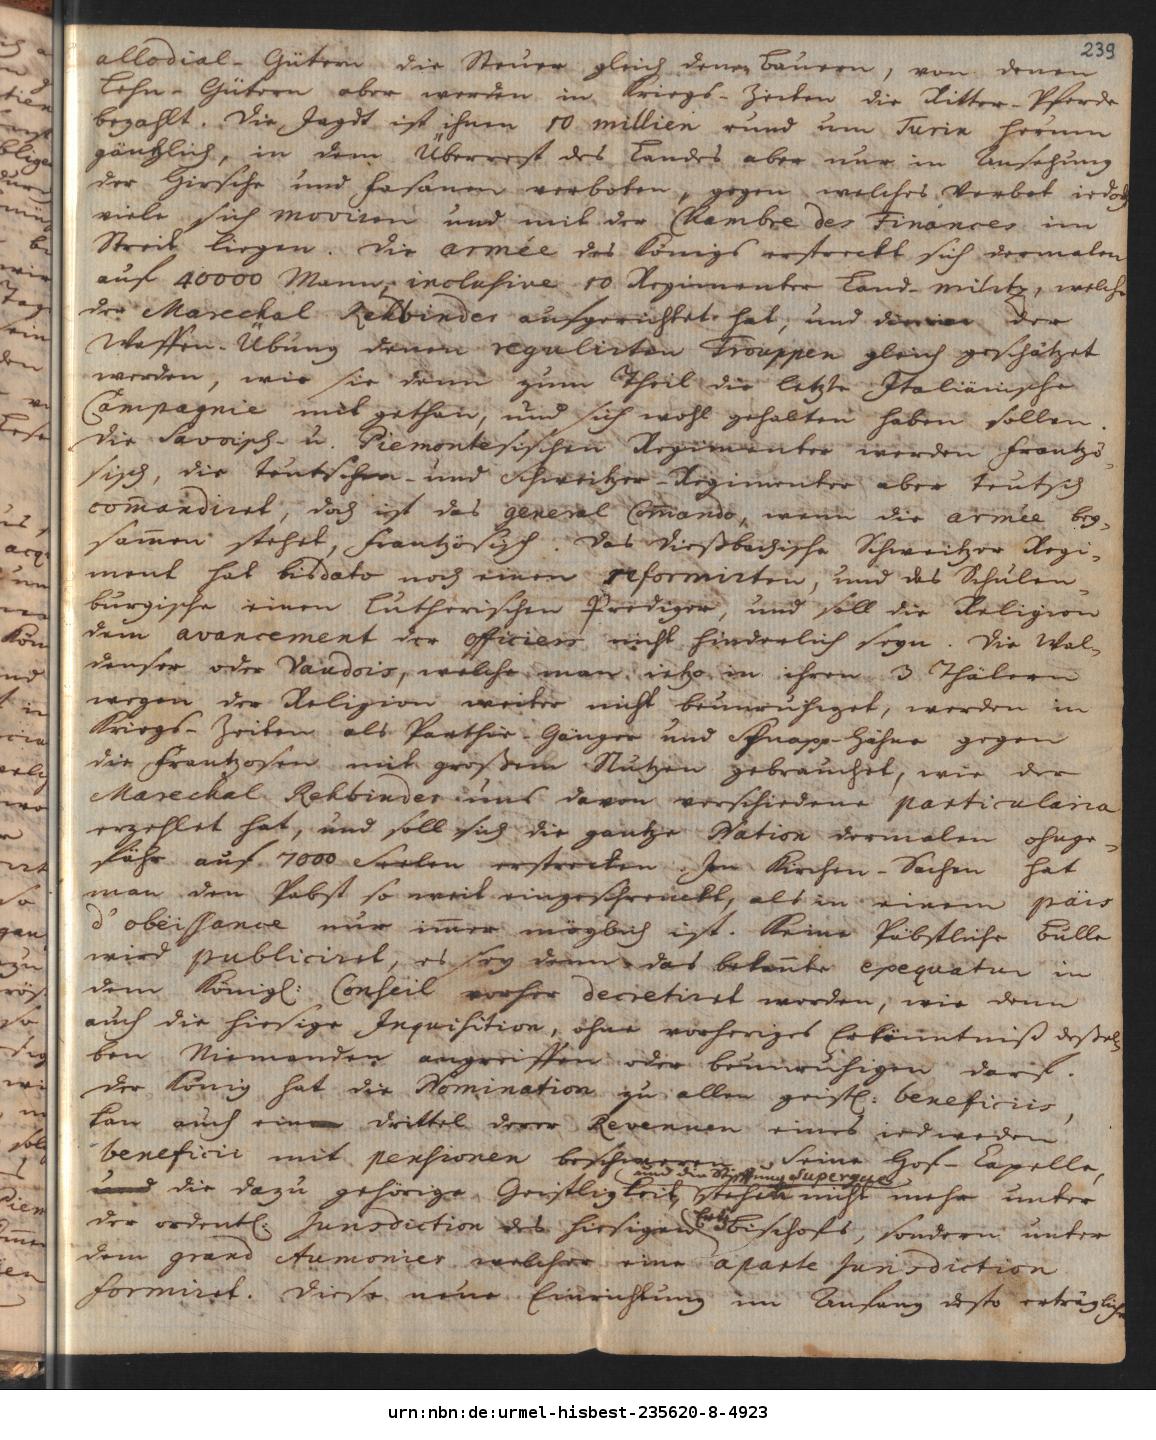 239
allodial-Gütern die Steuer gleich denen Bauern, von denen
Lehn-Gütern aber werden in Kriegs-Zeiten die Ritter-Pferde
bezahlt. Die Jagdt ist ihnen 10 millien rund um Turin herum
gäntzlich, in dem Überrest des Landes aber nur in Ansehung
der Hirsche und Fasanen verboten, gegen welches Verbot iedoch
viele sich moviren und mit der Chambre des Finances im
Streit liegen. Die armée des Königs erstreckt sich dermalen
auf 40000 Mann, inclusive 10 Regimenter Land-militz, welche
der Marechal Rehbinder aufgerichtet hat, und der
Waffen-Übung denen regulirten Trouppen gleich geschätzet
werden, wie sie denn zum Theil die letzte Italiänische
Campagnie mit gethan, und sich wohl gehalten haben sollen.
Die Savoisch- u. Piemontesischen Regimenter werden Frantzö-
sisch, die teutschen- und Schweitzer-Regimenter aber teutsch
com̅andiret, doch ist das general Com̅ando, wenn die armée bey-
sam̅en stehet, Frantzösisch. Das Dießbachische Schweitzer Regi-
ment hat bisdato noch einen reformirten, und das Schulen-
burgische einen Lutherischen Prediger, und soll die Religion
dem avancement der officiers nicht hinderlich seyn. Die Wal-
denser oder Vaudois, welche man ietzo in ihren 3 Thälern
wegen der Religion weiter nicht beunruhiget, werden in
Kriegs-Zeiten als Parthie-Gänger und Schnapp-Hähne gegen
die Frantzosen mit großem Nutzen gebrauchet, wie der
Marechal Rehbinder uns davon verschiedene particularia
erzehlet hat, und soll sich die gantze Nation dermalen ohnge-
fähr auf 7000 Seelen erstrecken. In Kirchen-Sachen hat
man den Pabst so weit eingeschrenckt, als in einem païs
d'obeissance nur im̅er möglich ist. Keine Päbstliche Bulle
wird publiciret, es sey denn das bekan̅te exequatur in
dem Königl: Conseil vorher decretiret worden, wie denn
auch die hiesige Inquisition, ohne vorheriges Erkänntniß deßel-
ben Niemanden angreiffen oder beunruhigen darf.
Der König hat die Nomination zu allen geistl: beneficiis,
kan auch einen drittel derer Revennen eines iedweden
beneficii mit pensionen beschweren. Seine Hof-Capelle,
und die Stifftung Superga
und die dazu gehörige Geistligkeit, stehen nicht mehr unter
der ordentl: Jurisdiction des hiesigen Ertz Bischofs, sondern unter
dem grand Aumonier welcher eine aparte Jurisdiction
formiret. Diese neue Einrichtung im Anfang desto erträglicher